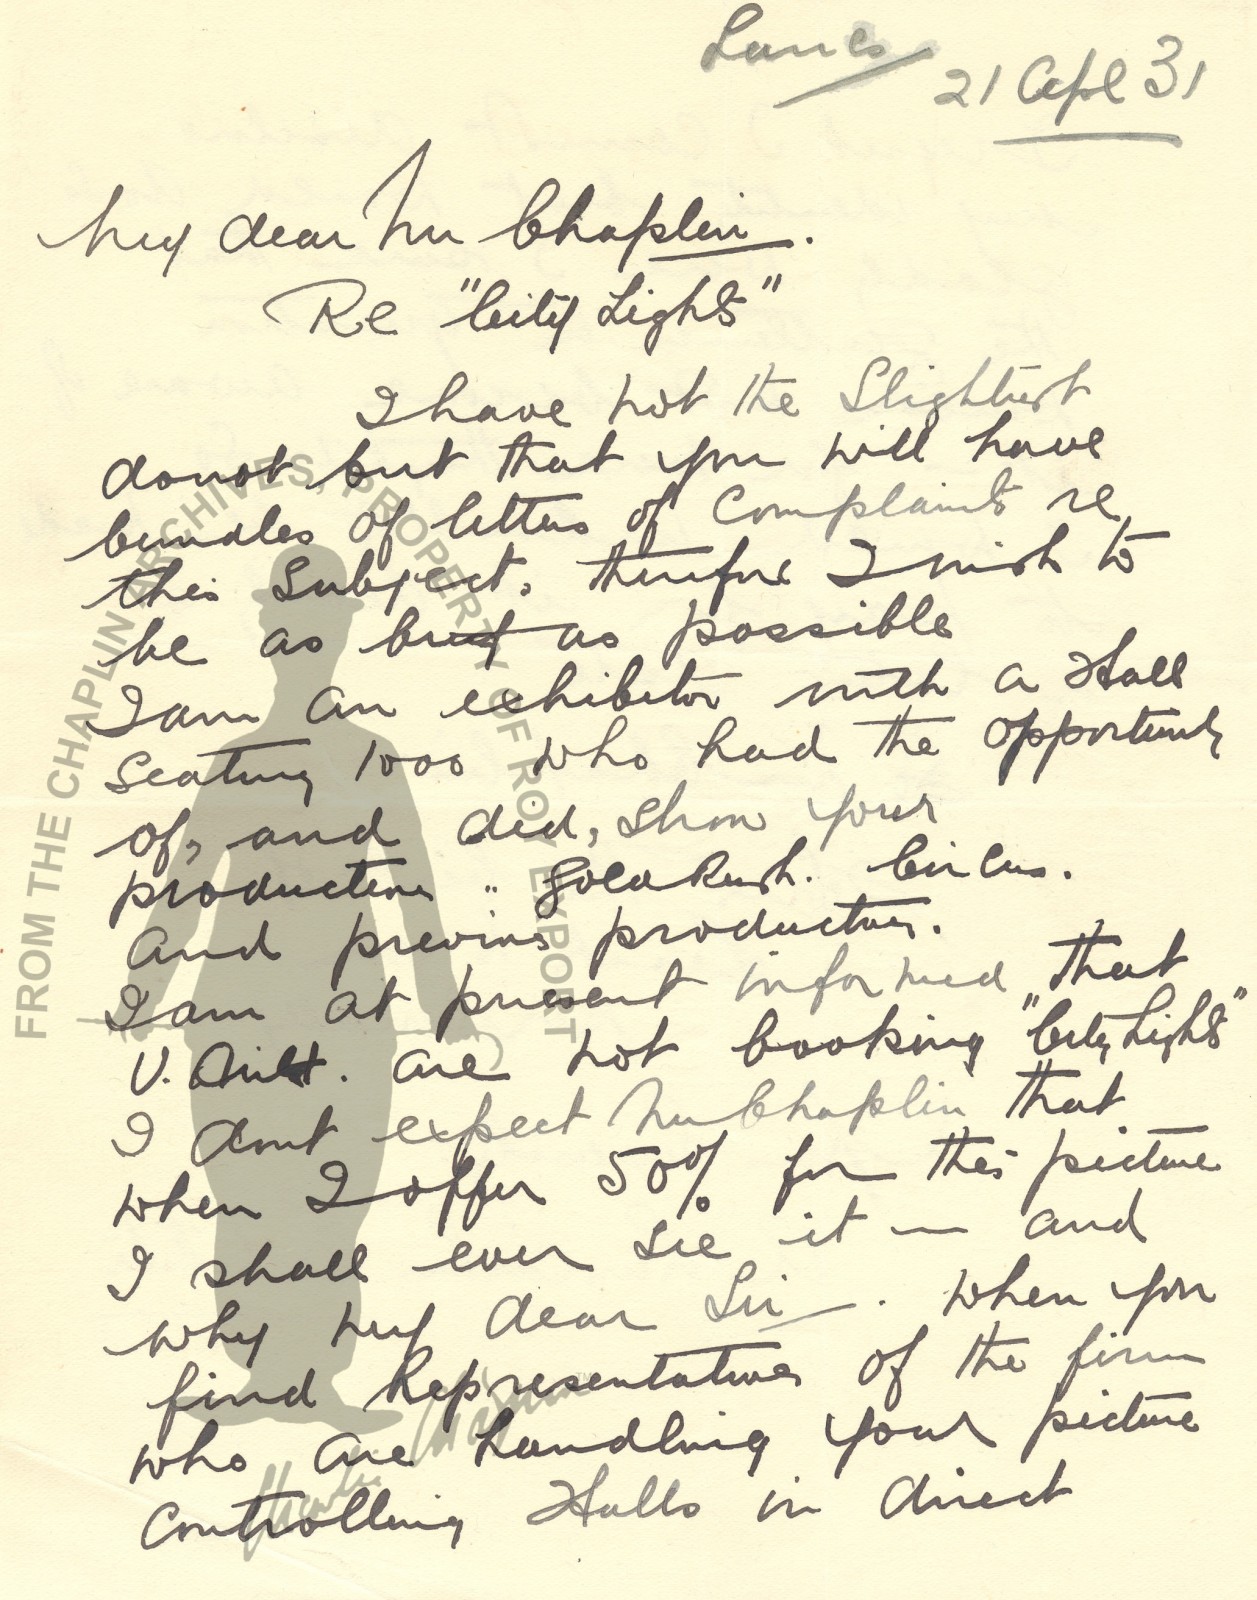 Lancs
21 Apl 31
My dear Mr Chaplin.
Re "City Lights"
I have not the Slightest
doubt but that you will have
bundles of letters of Complaints re
this Subject, therefore I wish to
be as brief as possible
I am an exhibitor with a Hall
Seating 1000 who had the opportunity
of, and did, Show your
productions " Gold Rush. Circus.
And previous productions.
I am at present informed that
U. are not booking "City Lights"
I dont expect Mr Chaplin that
when I offer 50% for this picture
I shall ever see it — and
why my dear Sir —. when you
find Representatives of the firm
who are handling your picture
Controlling Halls in direct
FROM THE CHAPLIN ARCHIVES, PROPERTY OF ROY EXPORT
Charlie Chaplin